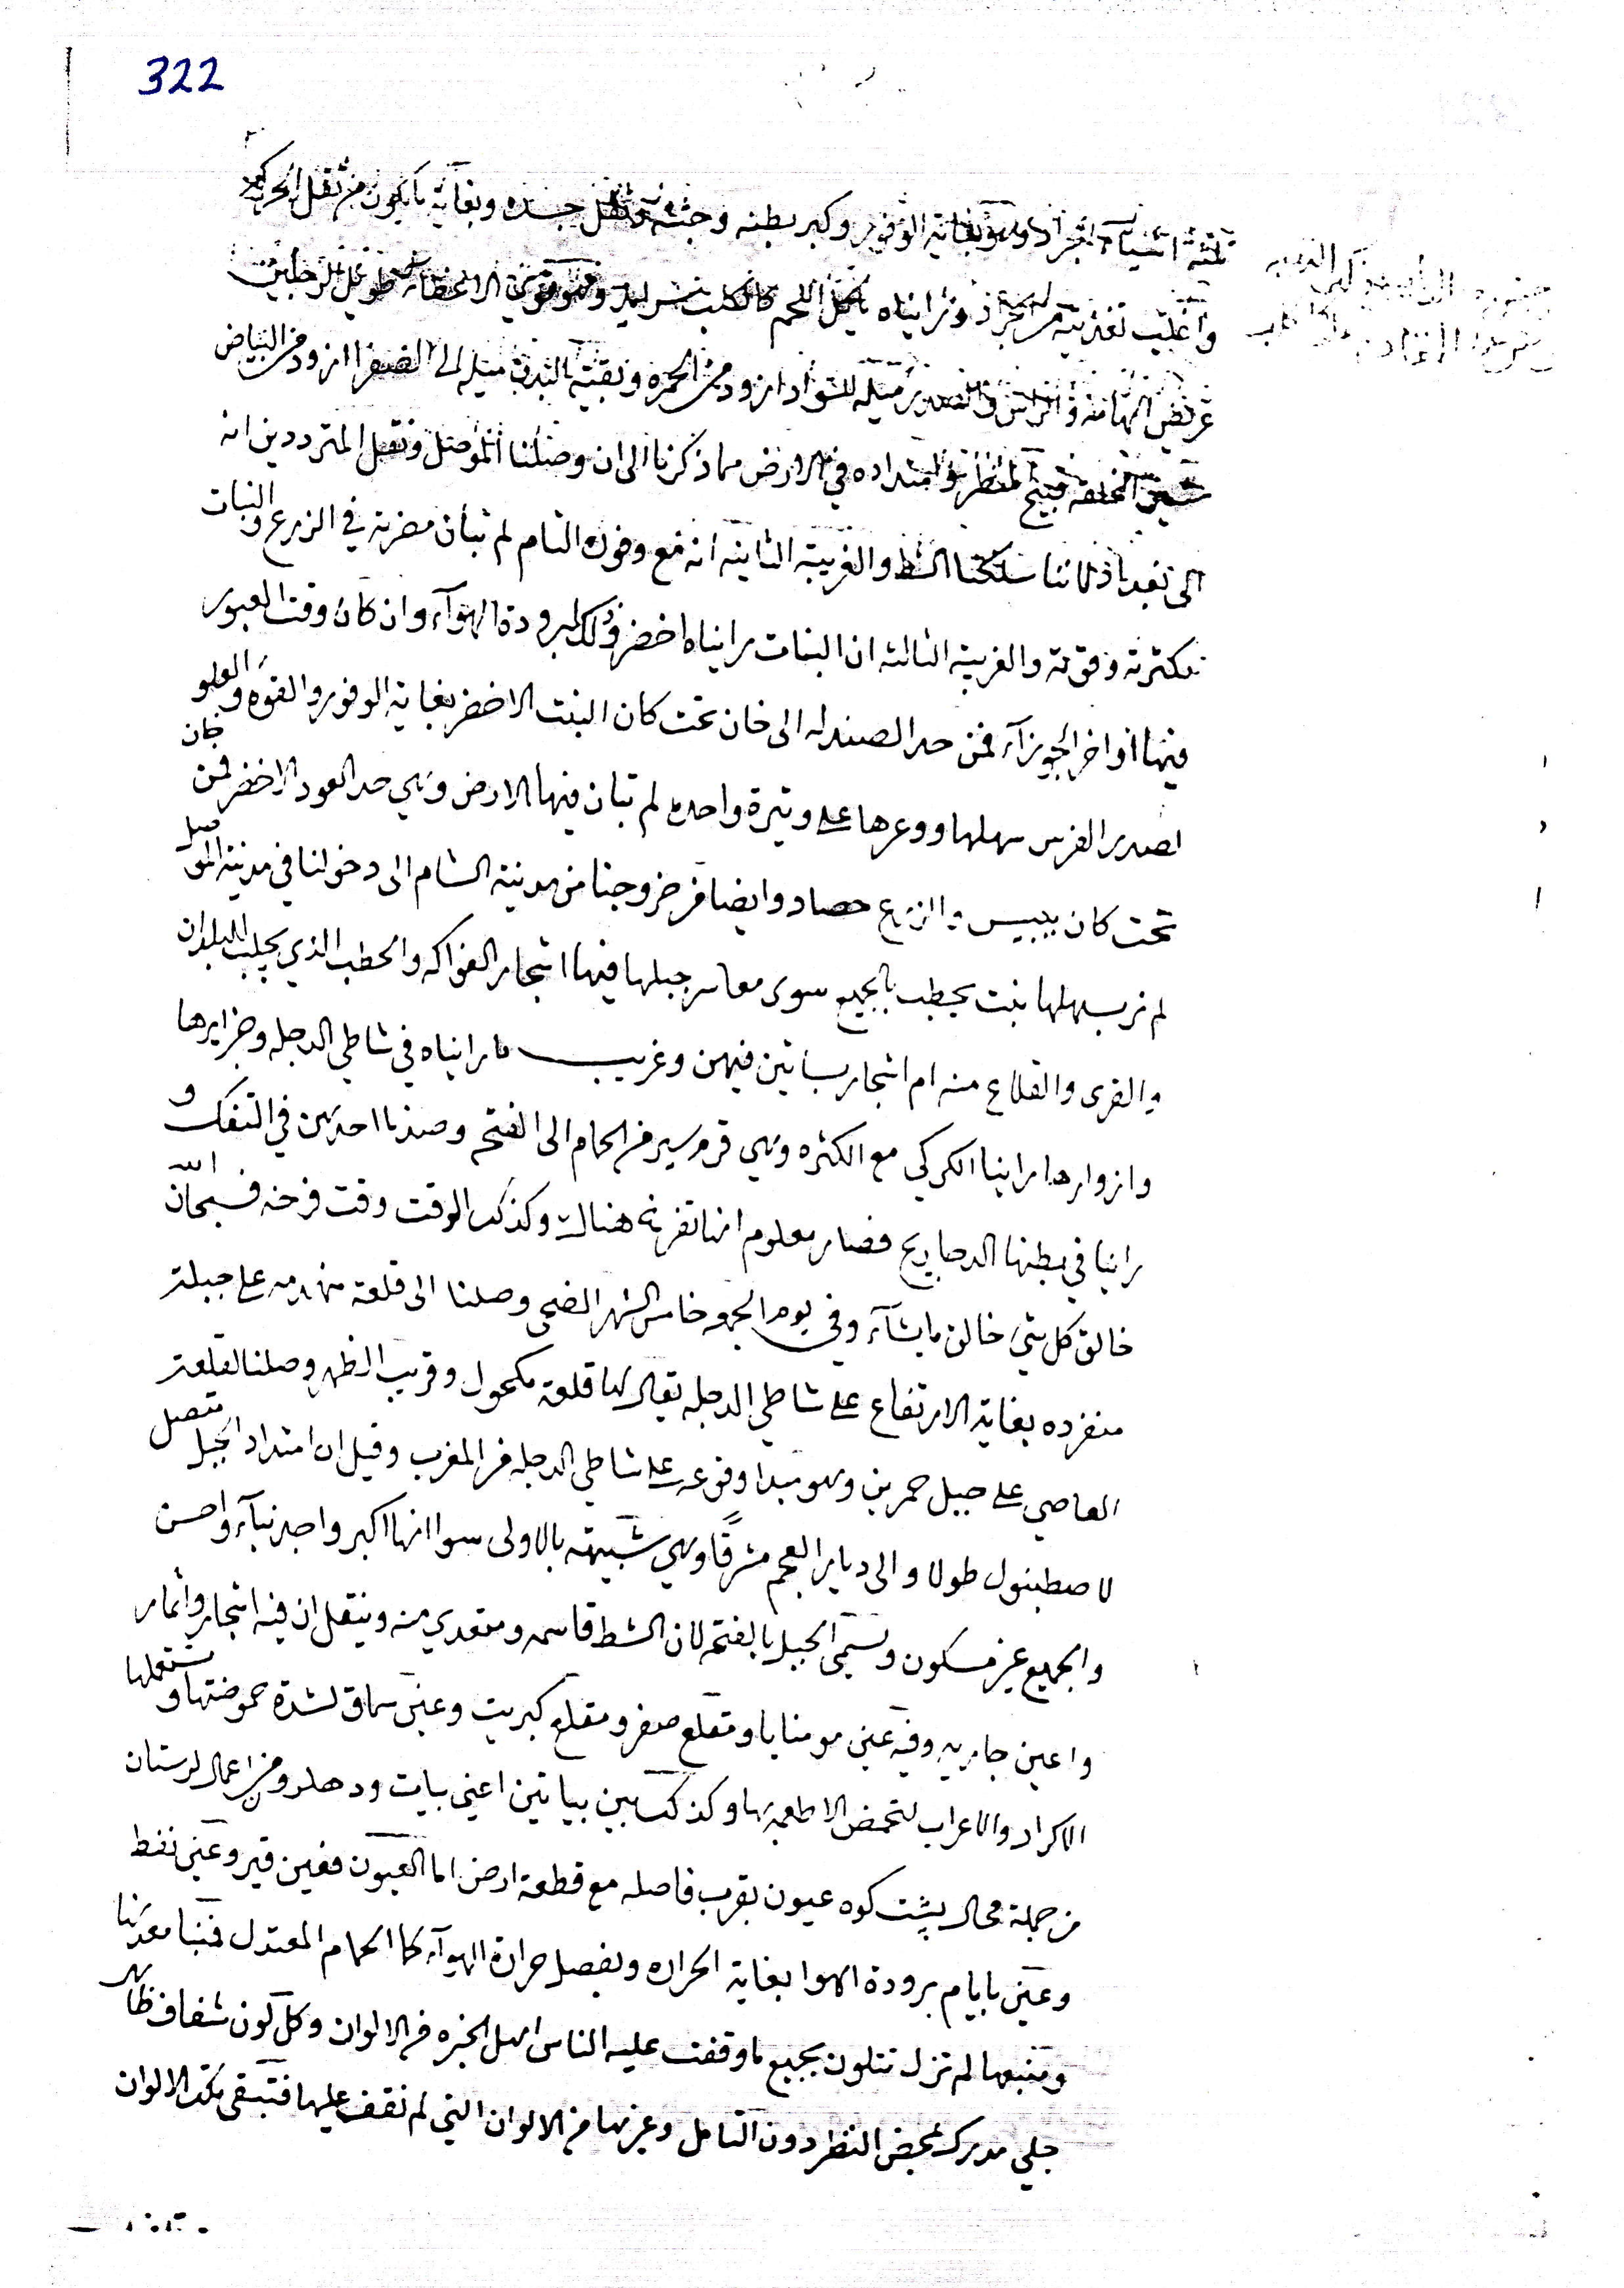 322
ثلثة اشياء الجراد وهو بغاية الوفور وكبر بطنه وجثته وثقل جسده وبغاية ما يكون من ثقل الحركه
واغلب تغذيته من الجراد ورايناه ياكل اللحم كالكلب وهو قوي الاعضاء طويل الرجلين
عريض الهامة والراس والصدر ميله للسواد ازود من الحمره وبقية البدن ميله الى الصفرا ازود من البياض
شين الخلقه قبيح المنظر وامتداده في الارض مما ذكرنا الى ان وصلنا الموصل ونقل المترددين انه
الى بغداد لاننا سلكنا الشط والغريبة الثانيه انه مع وفوره التام لم تبان مضرته في الزرع والنبات
بكثرته وقوته والغريبة الثالثه ان النبات رايناه اخضر وذلك لبرودة الهوآء وان كان وقت العبور
فيها اواخر الجوزآء فمن حد الصندله الى خان تحت كان النبت الاخضر بغاية الوفور والقوه والعلو
لصدر الفرس سهلها ووعرها على وتيرة واحده لم تبان فيها الارض وهي حد العود الاخضر فمن خان
تحت كان يبيس والزرع حصاد وايضا من خروجنا من مدينة الشام الى دخولنا في مدينة الموصل
لم نر بسهلها نبت يحطب بالجميع سوى معاسر جبلها فيها اشجار الفواكه والحطب الذي يجلب للبلدان
والقرى والقلاع منه ام اشجار بساتين فيهن وغريب ما رايناه في شاطي الدجله وجزايرها
وازوارها راينا الكركي مع الكثره وهي قرمسير من الحمام الى الفتحه وصدنا احدهن في التفك و
راينا في بطنها الدحاريج فصار معلوم انها تفرخ هناك وكذلك الوقت وقت فرخه فسبحان الله
خالق كل شي خالق ما يشآء وفي يوم الجمعه خامس الشهر الضحى وصلنا الى قلعة منهدمه على جبلة
منفرده بغاية الارتفاع على شاطي الدجله يقال لها قلعة مكحول وقريب الظهر وصلنا لقلعة
العاصي على جبل حمرين وهو مبدا وقوعه على شاطي الدجله من المغرب وقيل ان امتداد الجبل متصل
لاصطنبول طولا والى ديار العجم مشرقًا وهي شبيهة بالاولى سوا انها اكبر واجد بنآء واحسن
والجميع غير مسكون ويسمى الجبل بالفتحه لان الشط قاسمه ومتعدي منه وينقل ان فيه اشجار واثمار
واعين جاريه وفيه عين مومنايا ومقلع صفر ومقلع كبريت وعين سماق لشدة حموضتها وتستعملها
الاكراد والاعراب لتحمض الاطعمه بها وكذلك بين بياتين اعني بيات ودهلرو من اعمال لرستان
من جملة محال پشت كوه عيون بقرب فاصله مع قطعة ارض اما العيون فعين قير وعين نفط
وعين بايام برودة الهوا بغاية الحراره وبفصل حرارة الهوآء كما الحمام المعتدل فمنبا معدنها
ومنبعها لم تزل تتلون بجميع ما وقفت عليه الناس اهل الخبره من الالوان وكل لون شفاف ظاهر
جلي مدرك بمحض النظر دون التامل وغيرها من الالوان التي لم نقف عليها فتبقى بكل الالوان